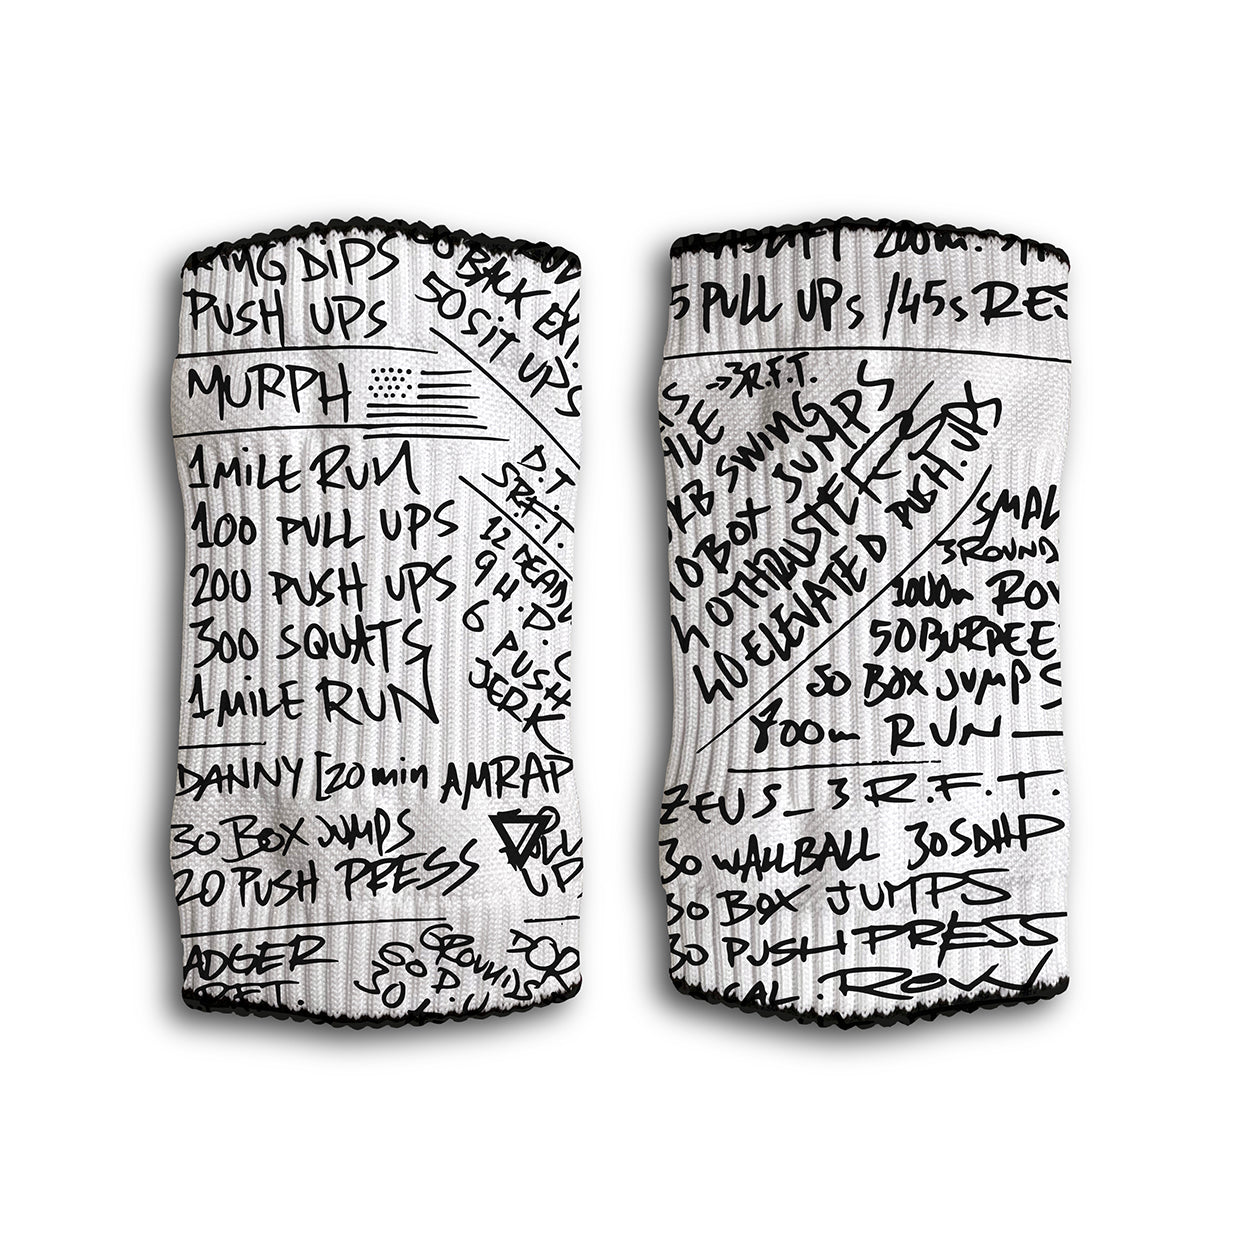 RING DIPS
PUSH UPS
BACK EXT.
50 SIT UPS
MURPH
1 MILE RUN
100 PULL UPS
200 PUSH UPS
300 SQUATS
1 MILE RUN
D.T
5R.F.T.
12 DEADL
9 H.P.C
6 PUSH
JERK
DANNY [20 min AMRAP
30 BOX JUMPS
20 PUSH PRESS
PULL
UP
ADGER
RFT.
200m.
5 PULL UPs /45s RES
→3R.F.T.
KB SWING
40 BOX JUMPS
40 THRUSTER
40 ELEVATED PUSH.UPS
SMAL
3 ROUND
1000m ROW
50 BURPEE
50 BOX JUMPS
800m RUN
ZEUS_3 R.F.T.
30 WALLBALL 30 SDHP
30 BOX JUMPS
30 PUSH PRESS
CAL. ROW